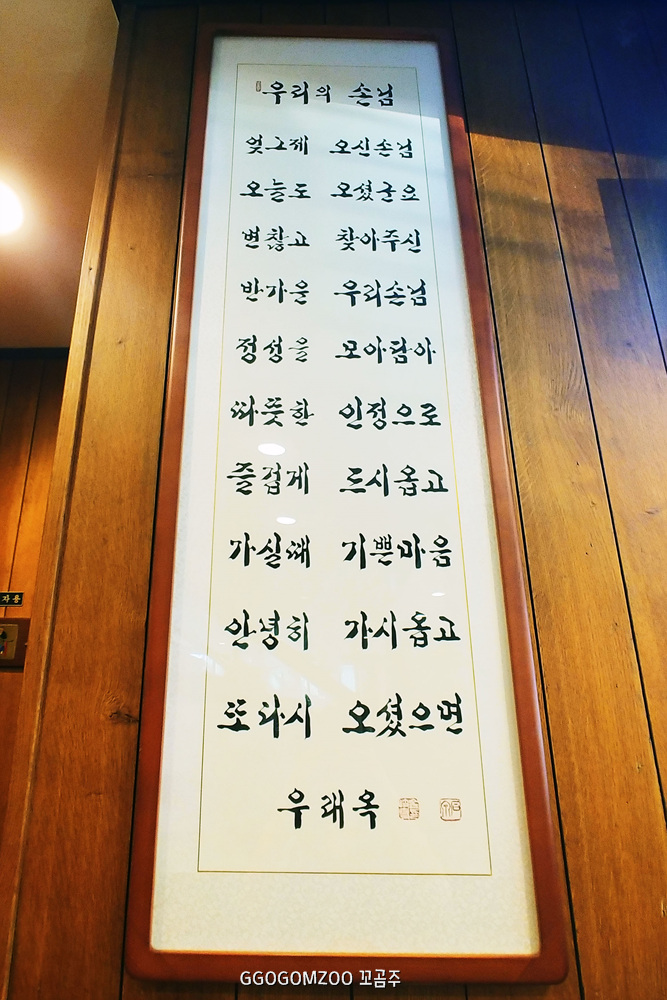 우리의 손님
엊그제 오신손님
오늘도 오셨군요
변찮고 찾아주신
반가운 우리손님
정성을 모아담아
따뜻한 인정으로
즐겁게 드시옵고
가실때 기쁜마음
안녕히 가시옵고
또다시 오셨으면
우래옥
자용
GGOGOMZOO 꼬곰주